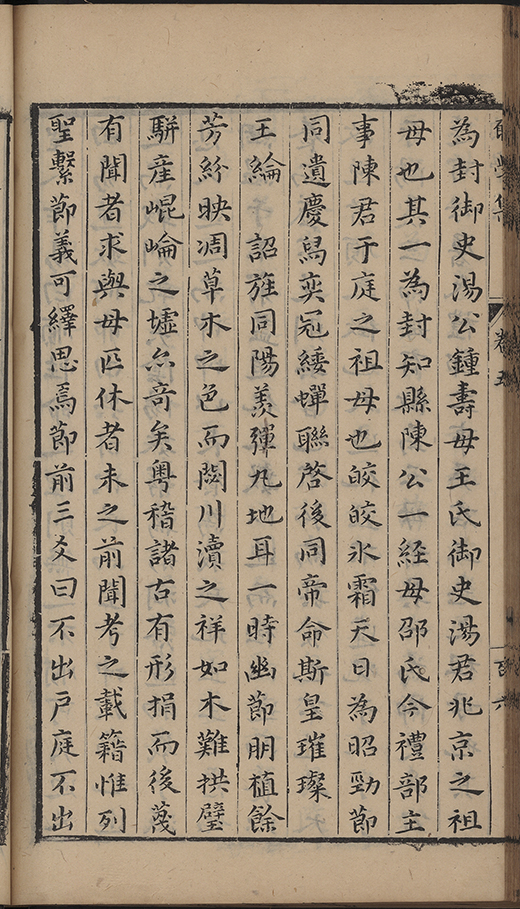 卷五
為封御史湯公鍾壽母王氏御史湯君兆京之祖
母也其一為封知縣陳公一経母邵氏今禮部主
事陳君于庭之祖母也皎皎氷霜天日為昭勁節
同遺慶舄奕冠緌蟬聯啓後同帝命斯皇璀璨
王綸 詔旌同陽羨彈丸地耳一時幽節朋植餘
芳紛映凋草木之色而閟川瀆之祥如木難拱璧
駢產崐崘之墟亦竒矣粤稽諸古有形捐而後蔑
有聞者求與母匹休者未之前聞考之載籍惟列
聖繋節義可繹思焉節前三爻曰不出戸庭不出